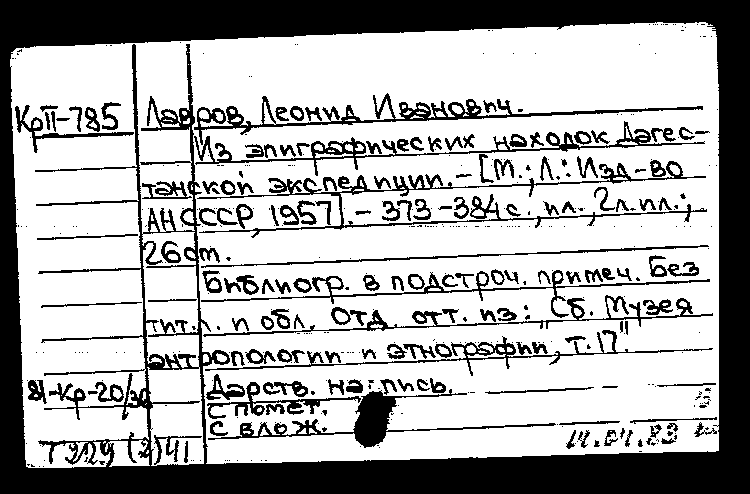 КрП-785 Лавров, Леонид Иванович.
Из эпиграфических находок Дагес-
танской экспедиции. - [М.; Л.: Изд-во
АН СССР, 1957]. - 373-384 с., ил., 2 л. ил.;
26 cm.
Библиогр. в подстроч. примеч. Без
тит. л. и обл. Отд. отт. из: "Сб. Музея
антропологии и этнографии, т. 17".
Дарств. надпись.
81-Кр-20/30
С помет.
С влож.
Т229(2)41
14.04.83